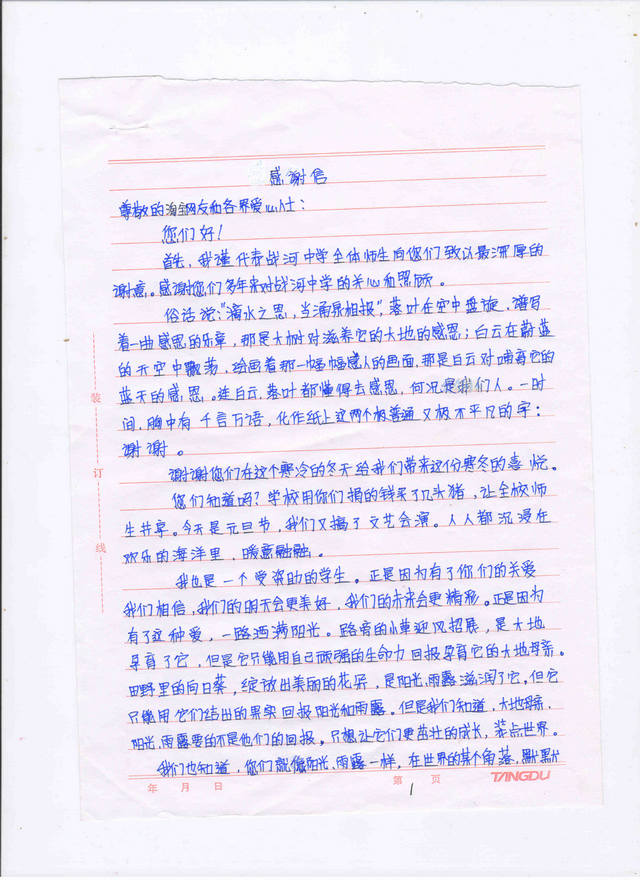 感谢信
尊敬的淘金网友和各界爱心人士：
您们好！
首先，我谨代表战河中学全体师生向您们致以最深厚的
谢意。感谢您们多年来对战河中学的关心和照顾。
俗话说："滴水之恩，当涌泉相报"，落叶在空中盘旋，谱写
着一曲感恩的乐章，那是大树对滋养它的大地的感恩；白云在蔚蓝
的天空中飘荡，绘画着那一幅幅感人的画面，那是白云对哺育它的
蓝天的感恩。连白云、落叶都懂得去感恩，何况是我们人。一时
间，胸中有千言万语，化作纸上这两个极普通又极不平凡的字：
谢谢。
谢谢您们在这个寒冷的冬天给我们带来这份寒冬的喜悦。
您们知道吗？学校用你们捐的钱买了几头猪，让全校师
生共享。今天是元旦节，我们又搞了文艺会演。人人都沉浸在
欢乐的海洋里，暖意融融。
我也是一个受资助的学生。正是因为有了你们的关爱
我们相信，我们的明天会更美好，我们的未来会更精彩。正是因为
有了这种爱，一路洒满阳光。路旁的小草迎风招展，是大地
孕育了它，但是它只能用自己顽强的生命力回报孕育它的大地母亲。
田野里的向日葵，绽放出美丽的花朵，是阳光、雨露滋润了它，但它
只能用它们结出的果实回报阳光和雨露。但是我们知道，大地母亲、
阳光、雨露要的不是他们的回报，只想让它们更茁壮的成长，装点世界。
我们也知道，您们就像阳光、雨露一样，在世界的某个角落，默默
装
订
线
年 月 日 第 1 页 TANGDU